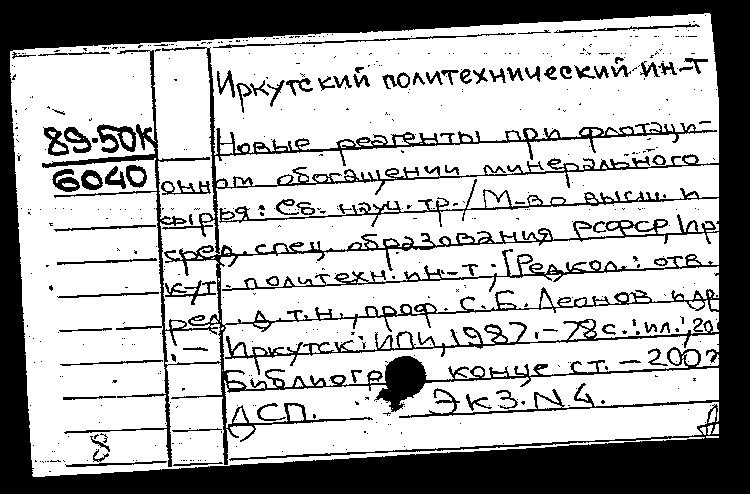 Иркутский политехнический ин-т
89-50К
6040
Новые реагенты при флотаци-
онном обогащении минерального
сырья: Сб. науч. тр./ М-во высш. и
сред. спец. образования РСФСР, Ир
к-т. политехн. ин-т; [Редкол.: отв.
ред. д.т.н., проф. С.Б. Леонов и др
. — Иркутск: ИПИ, 1987. - 78с.: ил.; 20
Библиогр конце ст. — 200
ДСП. Экз. N4.
8